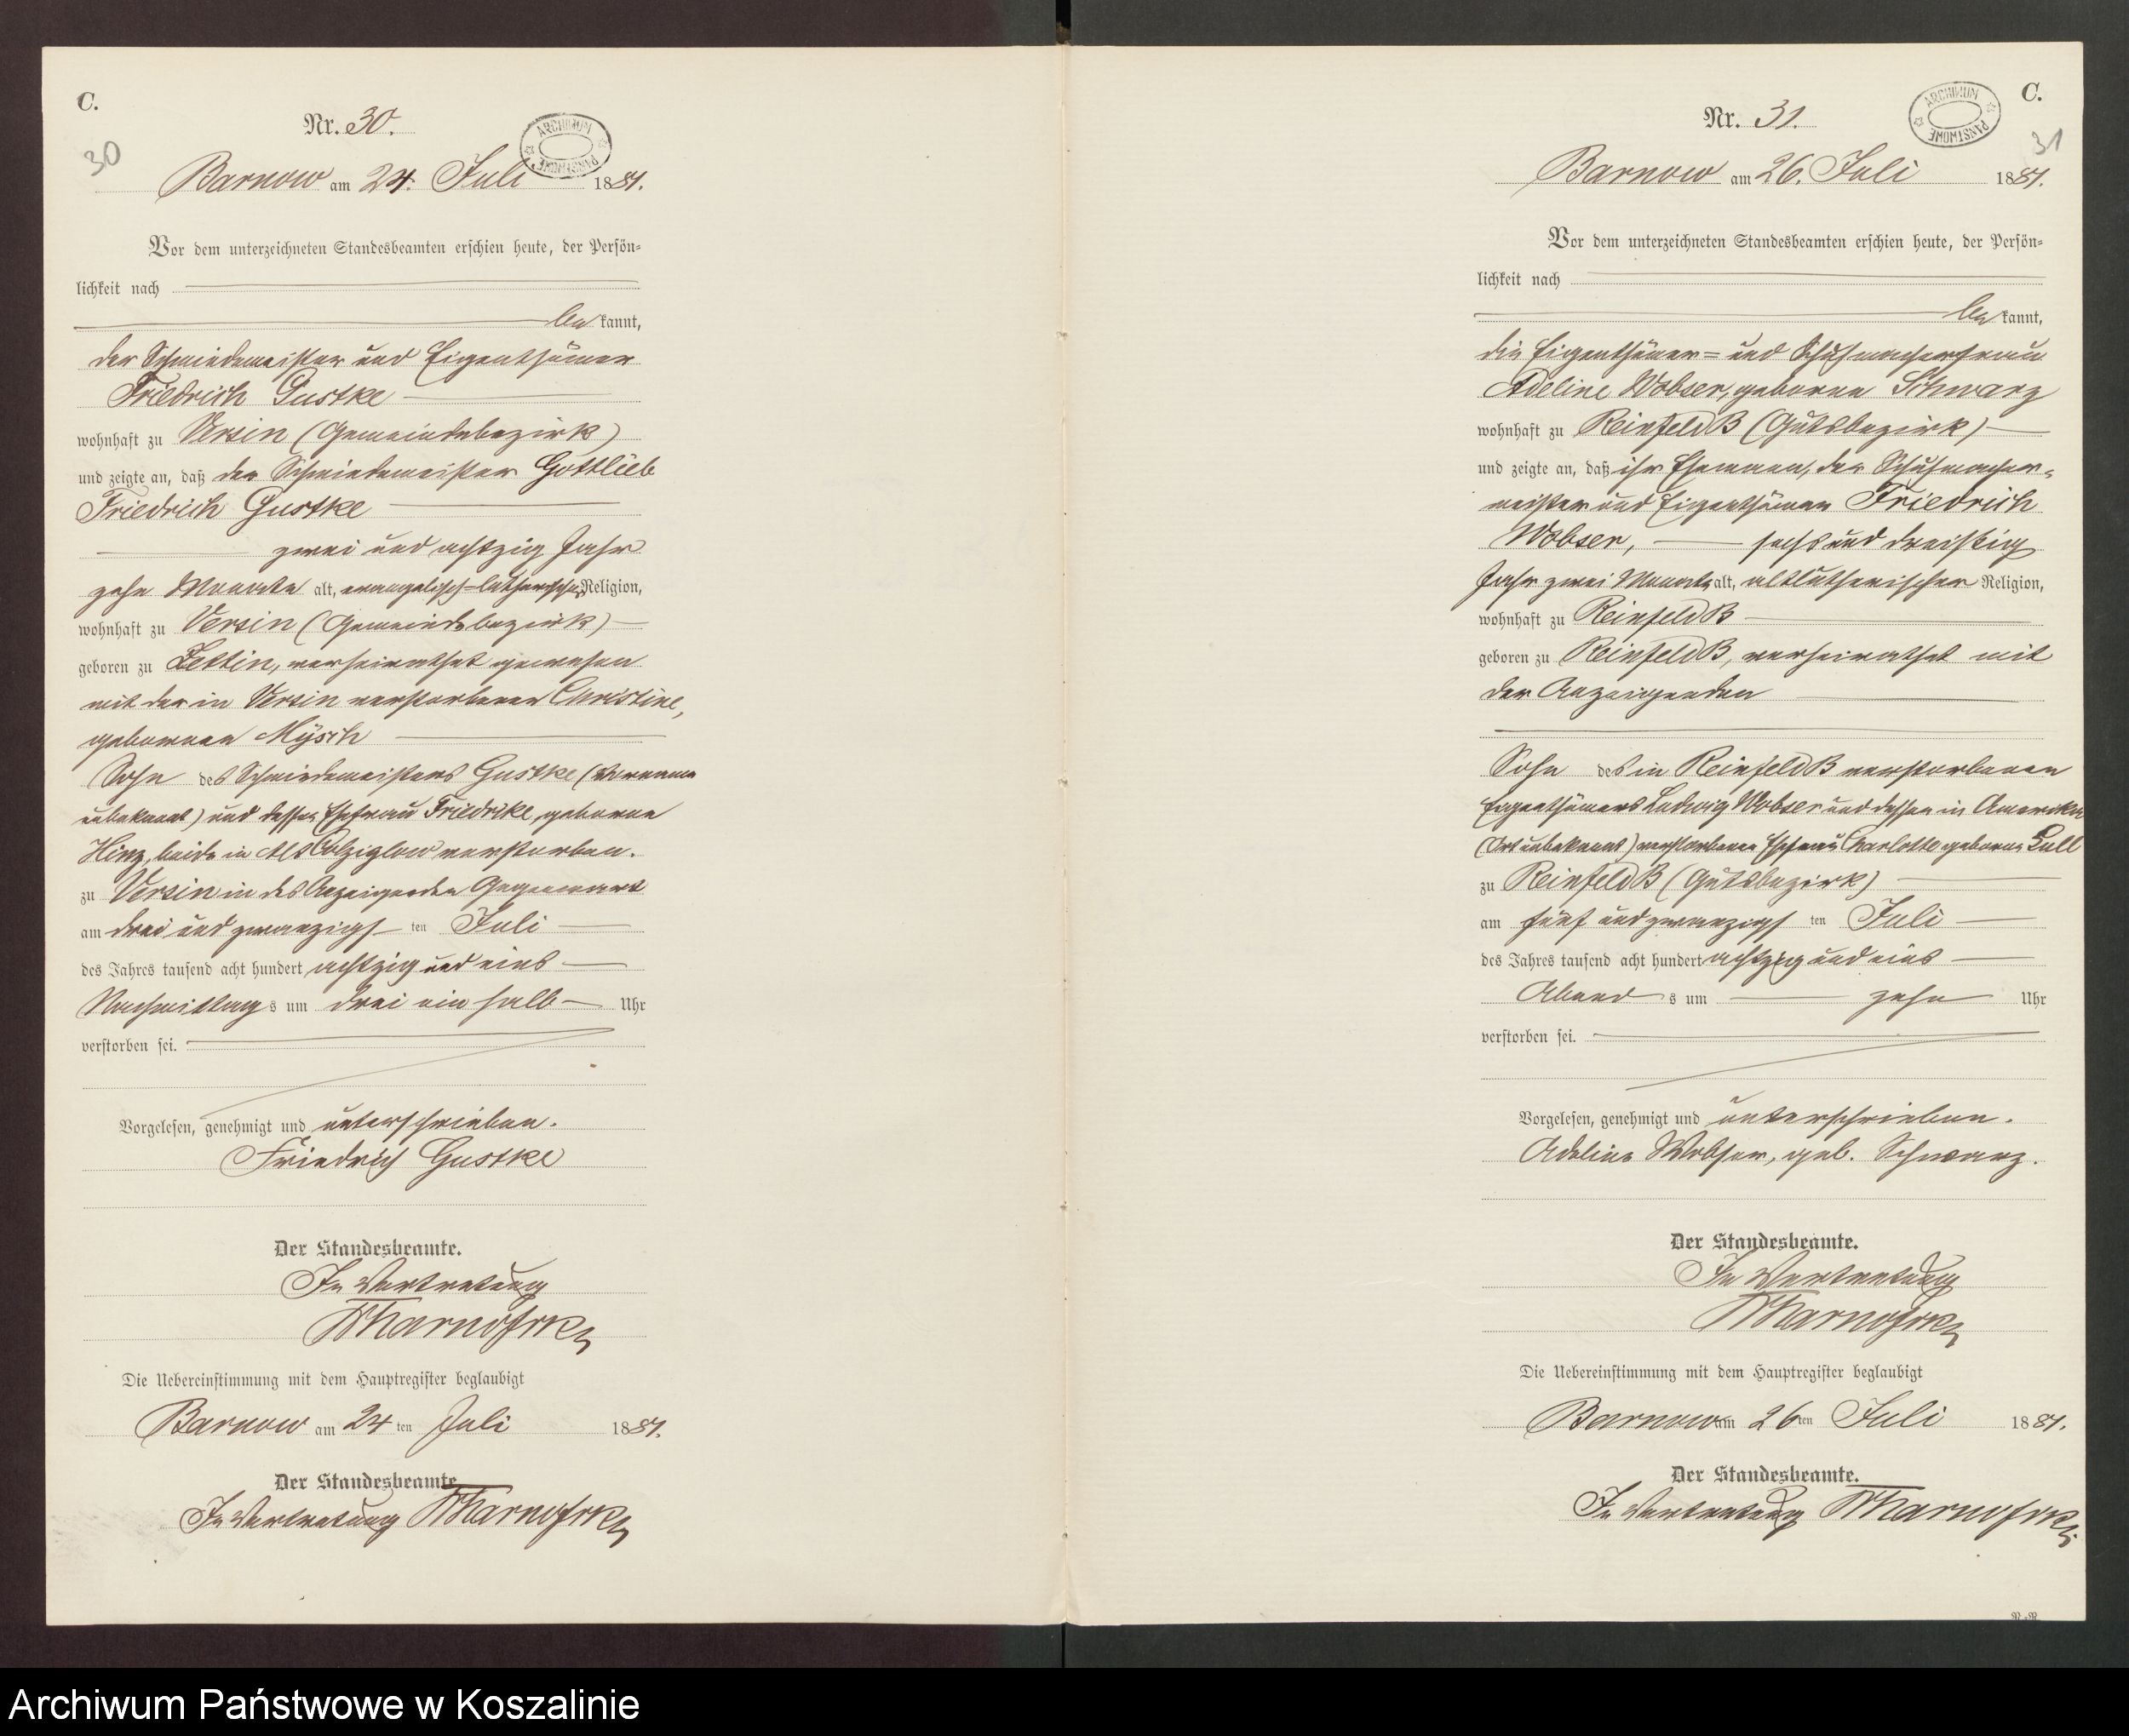 C.
Nr. 30.
ARCHIWUM PAŃSTWOWE
30
Barnow am 24. Juli 1881.
Vor dem unterzeichneten Standesbeamten erschien heute, der Persön-
lichkeit nach
be kannt,
der Schmiedemeister und Eigenthümer
Friedrich Gustke
wohnhaft zu Versin (Gemeindebezirk)
und zeigte an, daß der Schmiedemeister Gottlieb
Friedrich Gustke
zwei und achtzig Jahr
zehn Monate alt, evangelisch-lutherischer Religion,
wohnhaft zu Versin (Gemeindebezirk)
geboren zu Zettin, verheirathet gewesen
mit der in Versin verstorbenen Christine,
gebornen Mÿsch
Sohn des Schmiedemeisters Gustke (Vorname
unbekannt) und dessen Ehefrau Friedrike, geborne
Hinz, beide in Alt Colziglow verstorben.
zu Versin in des Anzeigenden Gegenwart
am drei und zwanzigs ten Juli
des Jahres tausend acht hundert achtzig und eins
Nachmittag s um drei ein halb Uhr
verstorben sei.
Vorgelesen, genehmigt und unterschrieben.
Friedrich Gustke
Der Standesbeamte.
In Vertretung
Die Uebereinstimmung mit dem Hauptregister beglaubigt
Barnow am 24 ten Juli 1881.
Der Standesbeamte.
In Vertretung
C.
Nr. 31.
ARCHIWUM PAŃSTWOWE
31
Barnow am 26. Juli 1881.
Vor dem unterzeichneten Standesbeamten erschien heute, der Persön-
lichkeit nach
be kannt,
die Eigenthümer= und Schuhmacherfrau
Adeline Wobser, geborne Schwarz
wohnhaft zu Reinfeld B (Gutsbezirk)
und zeigte an, daß ihr Ehemann, der Schuhmacher-
meister und Eigenthümer Friedrich
Wobser, sechs und dreißig
Jahr zwei Monate alt, altlutherischer Religion,
wohnhaft zu Reinfeld B
geboren zu Reinfeld B, verheirathet mit
der Anzeigenden
Sohn des in Reinfeld B verstorbenen
Eigenthümers Ludwig Wobser und dessen in Amerika
(Ort unbekannt) verstorbenen Ehefrau Charlotte geborne Lull
zu Reinfeld B (Gutsbezirk)
am fünf und zwanzigs ten Juli
des Jahres tausend acht hundert achtzig und eins
Abend s um zehn Uhr
verstorben sei.
Vorgelesen, genehmigt und unterschrieben.
Adeline Wobser, geb. Schwarz.
Der Standesbeamte.
In Vertretung
Die Uebereinstimmung mit dem Hauptregister beglaubigt
Barnow am 26 ten Juli 1881.
Der Standesbeamte.
In Vertretung
Archiwum Państwowe w Koszalinie